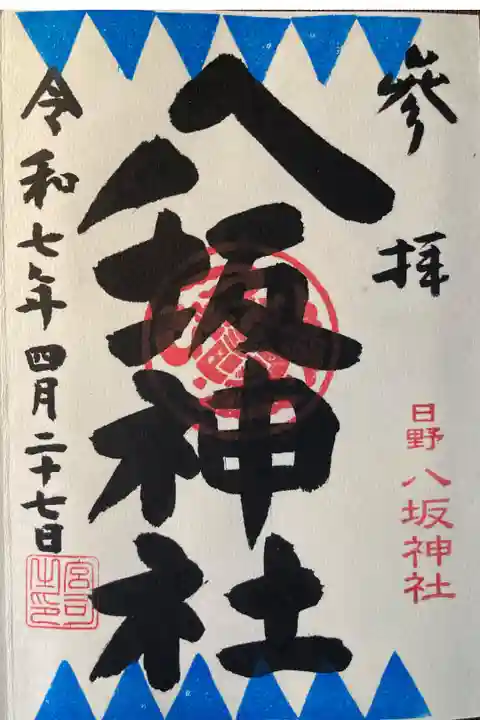 參拝
日野八坂神社
八坂神社
令和七年四月二十七日
宮司之印